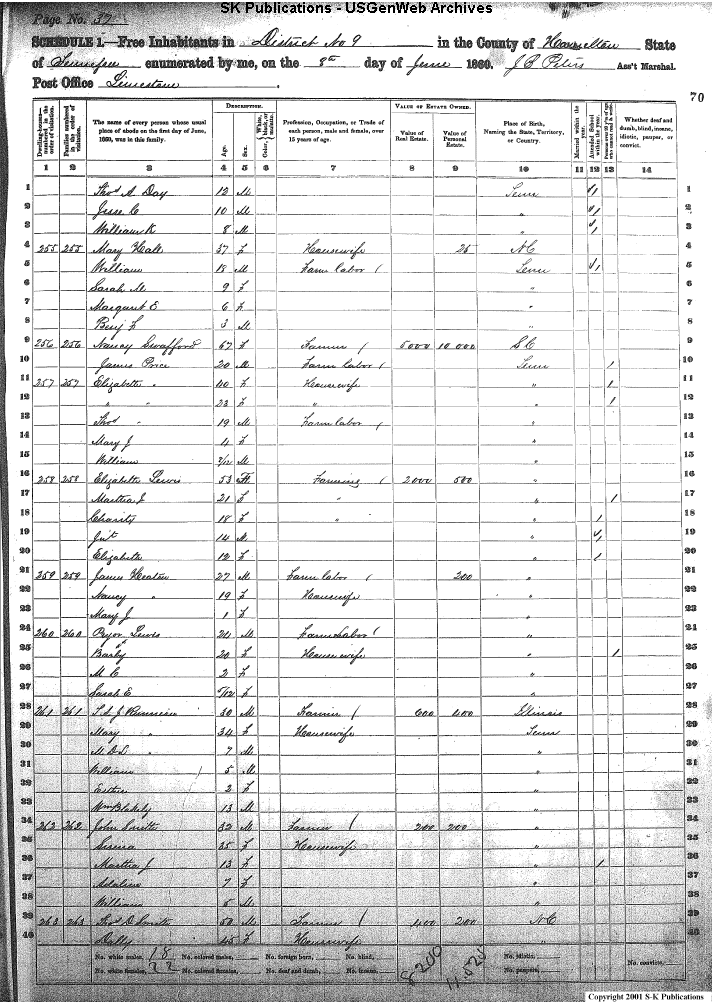 SK Publications - USGenWeb Archives
Page No. 37
SCHEDULE 1.—Free Inhabitants in District No 9 in the County of Hamilton State
of Tennessee enumerated by me, on the 8th day of June 1860. J C Peters Ass't Marshal.
Post Office Limestone
70
Dwelling-houses—numbered in the order of visitation.
Families numbered in the order of visitation.
The name of every person whose usual place of abode on the first day of June, 1860, was in this family.
DESCRIPTION.
Age.
Sex.
Color, White, black, or mulatto.
Profession, Occupation, or Trade of each person, male and female, over 15 years of age.
VALUE OF ESTATE OWNED.
Value of Real Estate.
Value of Personal Estate.
Place of Birth, Naming the State, Territory, or Country.
Married within the year.
Attended School within the year.
Whether deaf and dumb, blind, insane, idiotic, pauper, or convict.
1 2 3 4 5 6 7 8 9 10 11 12 13 14
1 Thos A Day 12 M Tenn 1 1
2 Jesse C 10 M " 1 2
3 William K 8 M " 1 3
4 255 255 Mary Hall 37 F Housewife 25 NC 4
5 William 18 M Farm labor Tenn 1 5
6 Sarah M 9 F " 6
7 Margaret E 6 F " 7
8 Benj F 3 M " 8
9 256 256 Nancy Swafford 67 F Farmer 5000 10 000 SC 9
10 James Price 20 M Farm labor Tenn 1 10
11 257 257 Elizabeth " 40 F Housewife " 1 11
12 " " 22 F " " 1 12
13 Thos " 19 M Farm labor " 13
14 Mary J 4 F " 14
15 William /12 M " 15
16 258 258 Elizabeth Lewis 53 F Farming 2000 500 " 16
17 Martha J 21 F " " 1 17
18 Charity 18 F " " 1 18
19 14 M " 1 19
20 Elizabeth 12 F " 1 20
21 259 259 James Heaton 27 M Farm labor 200 " 21
22 Nancy " 19 F Housewife " 22
23 Mary J 1 F " 23
24 260 260 Pryor Lewis 24 M Farm Labor " 24
25 Barby " 20 F Housewife " 1 25
26 M C 2 F " 26
27 Sarah E /12 F " 27
28 261 261 30 M Farmer 600 400 Illinois 28
29 Mary " 34 F Housewife Tenn 29
30 M D L " 7 M " 30
31 William 5 M " 31
32 2 F " 32
33 Wm Blakely 13 M " 33
34 262 262 John Smith 32 M Farmer 200 200 " 34
35 Serena 35 F Housewife " 35
36 Martha J 13 F " 1 36
37 Adaline 7 F " 37
38 William 5 M " 38
39 263 263 Thos D Smith 50 M Farmer 400 200 NC 39
40 Dolly 45 F Housewife " 40
No. white males, 18 No. colored males, No. foreign born, No. blind, No. idiotic, No. convicts,
No. white females, 22 No. colored females, No. deaf and dumb, No. insane, No. paupers,
8200
11.525
Copyright 2001 S-K Publications